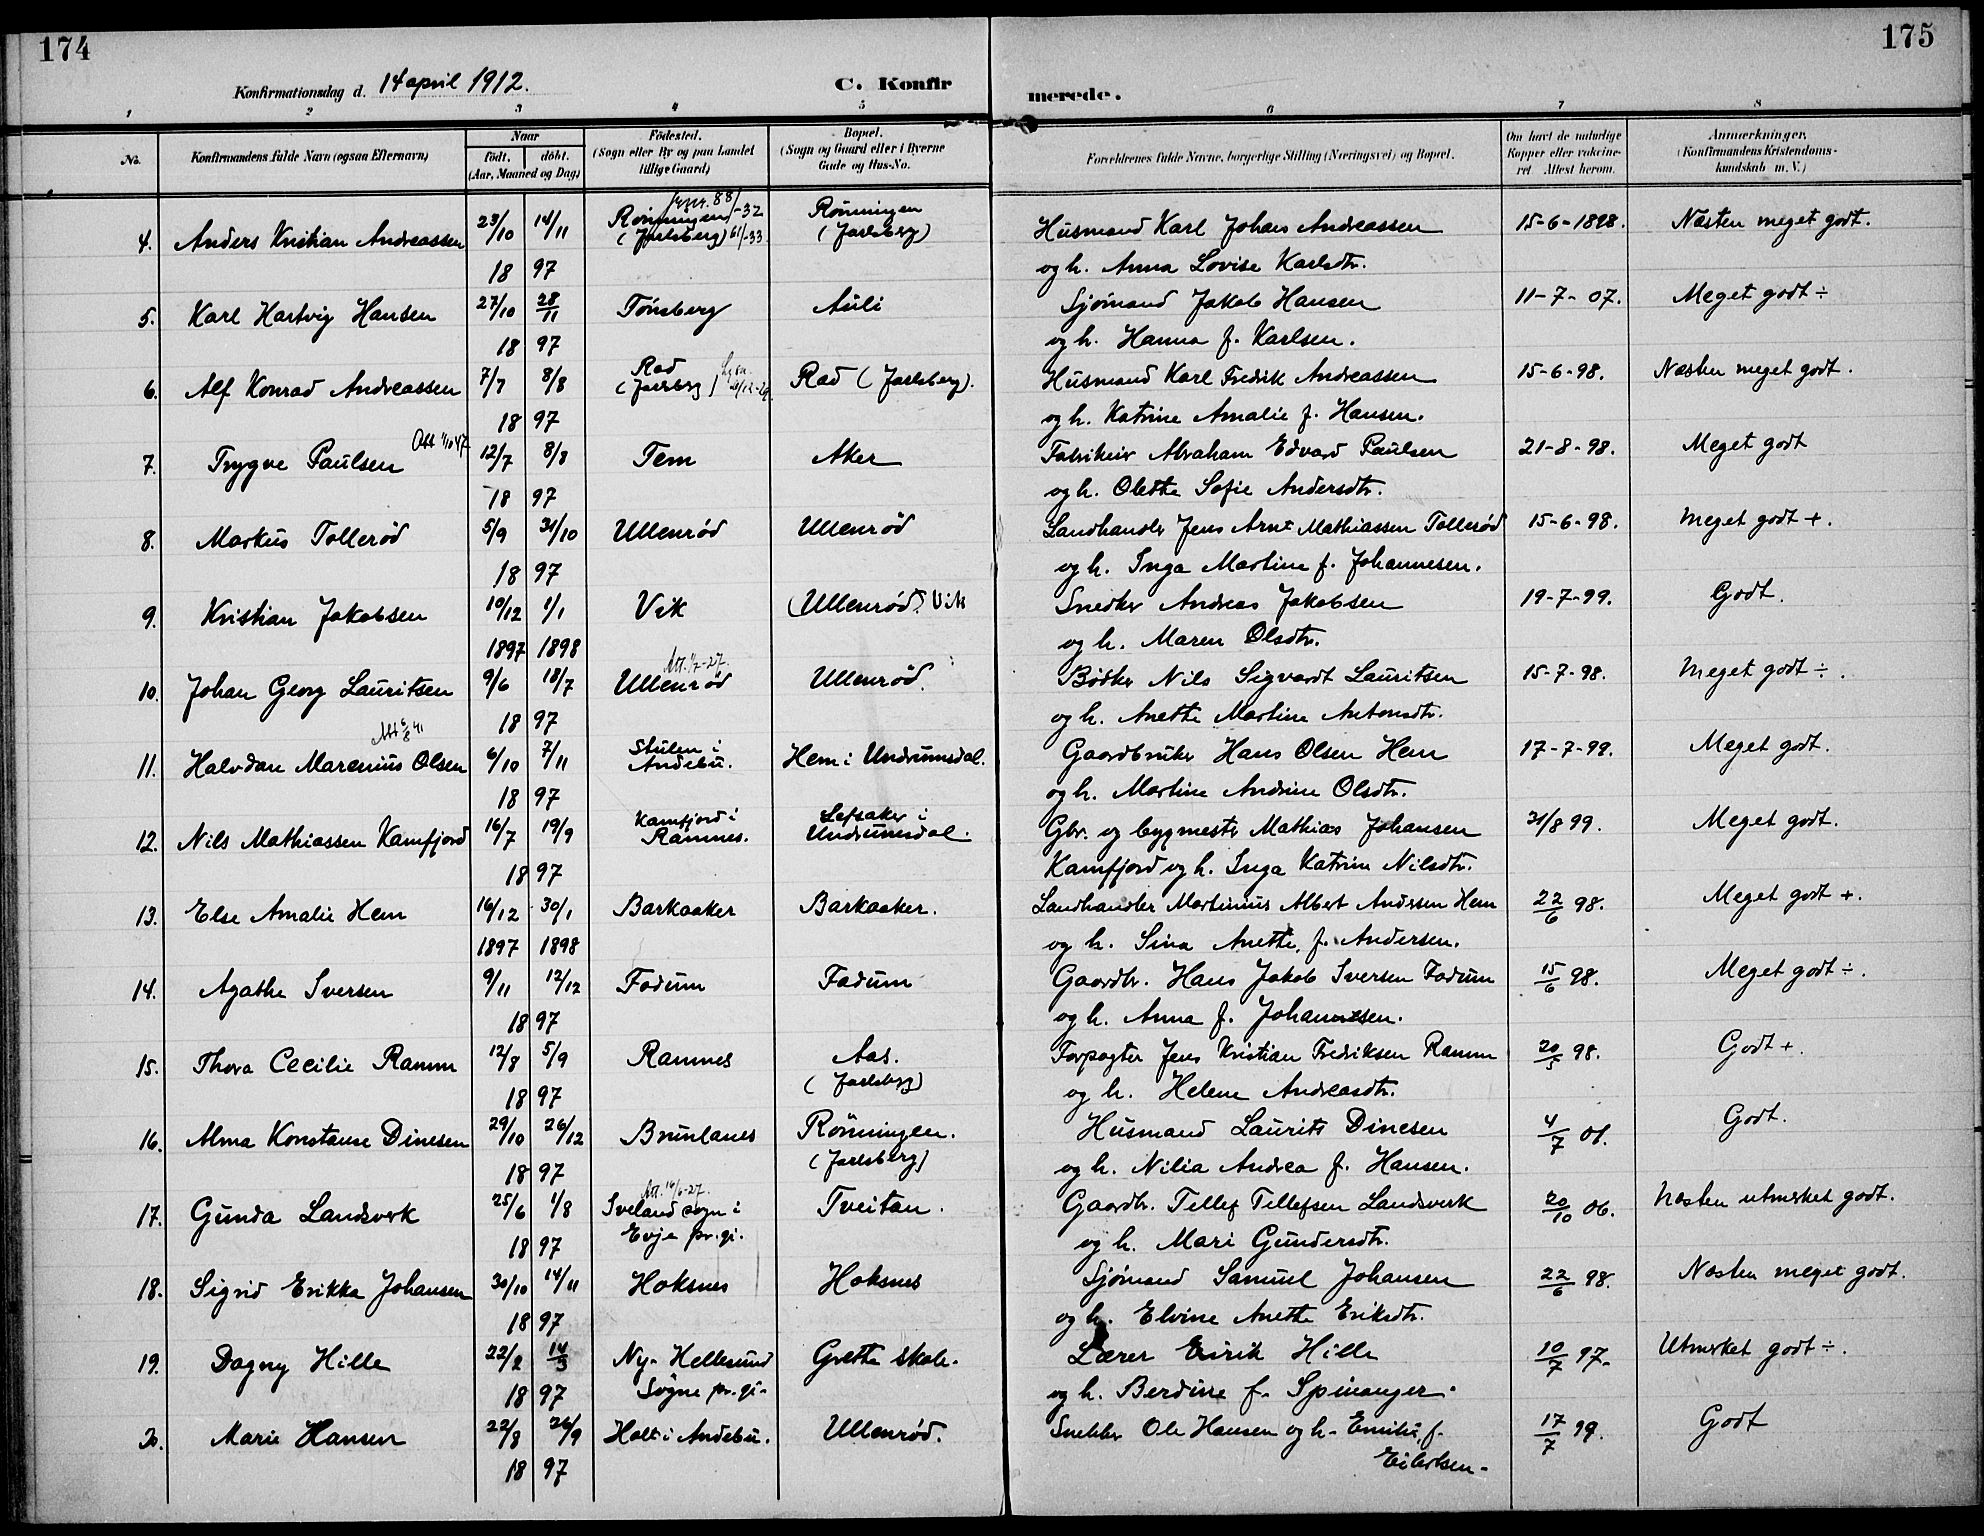 174
175
Konfirmationsdag d. 14 april 1912.
C. Konfir
merede.
1 2 3 4 5 6 7 8
No.
Konfirmandens fulde Navn (ogsaa Efternavn)
Naar
født. døbt.
(Aar, Maaned og Dag)
Fødested.
(Sogn eller By og paa Landet
tillige Gaard)
Bopæl.
(Sogn og Gaard eller i Byerne
Gade og Hus-No.
Forældrenes fulde Navne, borgerlige Stilling (Næringsvei) og Bopæl.
Om havt de naturlige
Kopper eller vakcine-
ret Attest herom.
Anmærkninger.
(Konfirmandens Kristendoms-
kundskab m. V.)
88/-32
4. Anders Kristian Andreassen 23/10 14/11 Rønningen Rønningen Husmand Karl Johans Andreassen 15-6-1898. Næsten meget godt.
(Jarlsberg) 61/-33 (Jarlsberg)
18 97 og h. Anna Lovise Karlsdtr.
5. Karl Hartvig Hansen 27/10 28/11 Tønsberg Auli Sjømand Jakob Hansen 11-7-07. Meget godt ÷
18 97 og h. Hanna f. Karlsen.
6. Alf Konrad Andreassen 7/7 8/8 Rad Rad (Jarlsberg). Husmand Karl Fredrik Andreassen 15-6-98. Næsten meget godt.
(Jarlsberg)
18 97 og h. Katrine Amalie f. Hansen.
Att 1/10 47
7. Trygve Paulsen 12/7 8/8 Tem Aker Fabrikeier Abraham Edvard Paulsen 21-8-98. Meget godt
18 97 og h. Olette Sofie Andersdtr.
8. Markus Tollerød 5/9 31/10 Ullenrød Ullenrød Landhandler Jens Arnt Mathiassen Tollerød 15-6-98. Meget godt +.
18 97 og h. Inga Martine f. Johannesen.
9. Kristian Jakobsen 10/12 1/1 Vik (Ullenrød) Vik Snedker Andreas Jakobsen 19-7-99. Godt.
1897 1898 og h. Maren Olsdtr.
Att. 1/7-27.
10. Johan Georg Lauritsen 9/6 18/7 Ullenrød Ullenrød. Bødker Nils Sigvardt Lauritsen 15-7-98. Meget godt ÷.
18 97 og h. Anette Martine Antonsdtr.
Att 6/8 41
11. Halvdan Marenius Olsen 6/10 7/11 Stulen i Hem i Undrumsdal. Gaardbruker Hans Olsen Hem 17-7-99. Meget godt.
Andebu.
18 97 og h. Martine Andrine Olsdtr.
12. Nils Mathiassen Kamfjord 16/7 19/9 Kamfjord i Lefsaker i Gbr. og bygmester Mathias Johansen 31/8 99. Meget godt.
Ramnes. Undrumsdal.
18 97 Kamfjord og h. Inga Katrine Nilsdtr.
13. Else Amalie Hem 16/12 30/1 Barkaaker Barkaaker. Landhandler Martinius Albert Andersen Hem 22/6 98. Meget godt +.
1897 1898 og h. Sina Anette, f. Andersen.
14. Agathe Iversen 9/11 12/12 Fadum Fadum Gaardbr. Hans Jakob Iversen Fadum 15/6 98. Meget godt ÷.
18 97 og h. Anna f. Johannesen.
15. Thora Cecilie Ramm 12/8 5/9 Ramnes Aas. Forpagter Jens Kristian Fredriksen Ramm 20/5 98. Godt +.
(Jarlsberg)
18 97 og h. Helene Andreasdtr.
16. Alma Konstanse Dinesen 29/10 26/12 Brunlanes Rønningen. Husmand Laurits Dinesen 4/7 01. Godt.
(Jarlsberg)
18 97 og h. Nilia Andrea f. Hansen.
17. Gunda Landsverk 25/6 1/8 Iveland sogn i Tveitan. Gaardbr. Tellef Tellefsen Landsverk 20/10 06. Næsten utmerket godt.
18 97 Evje pr.gj. og h. Mari Gundersdtr.
18. Sigrid Erikka Johansen 30/10 14/11 Hoksnes Hoksnes Sjømand Samuel Johansen 22/6 98. Næsten meget godt.
18 97 og h. Elvine Anette Eriksdtr.
19. Dagny Hille 22/2 14/3 Ny-Hellesund Grette skole. Lærer Eirik Hille 10/7 97. Utmerket godt ÷.
18 97 Søgne pr.gj. og h. Berdine f. Spinanger.
20. Marie Hansen 22/8 26/9 Holt i Andebu. Ullenrød. Snekker Ole Hansen og h. Emilie, f. 17/7 99. Godt
18 97 Eilertsen.